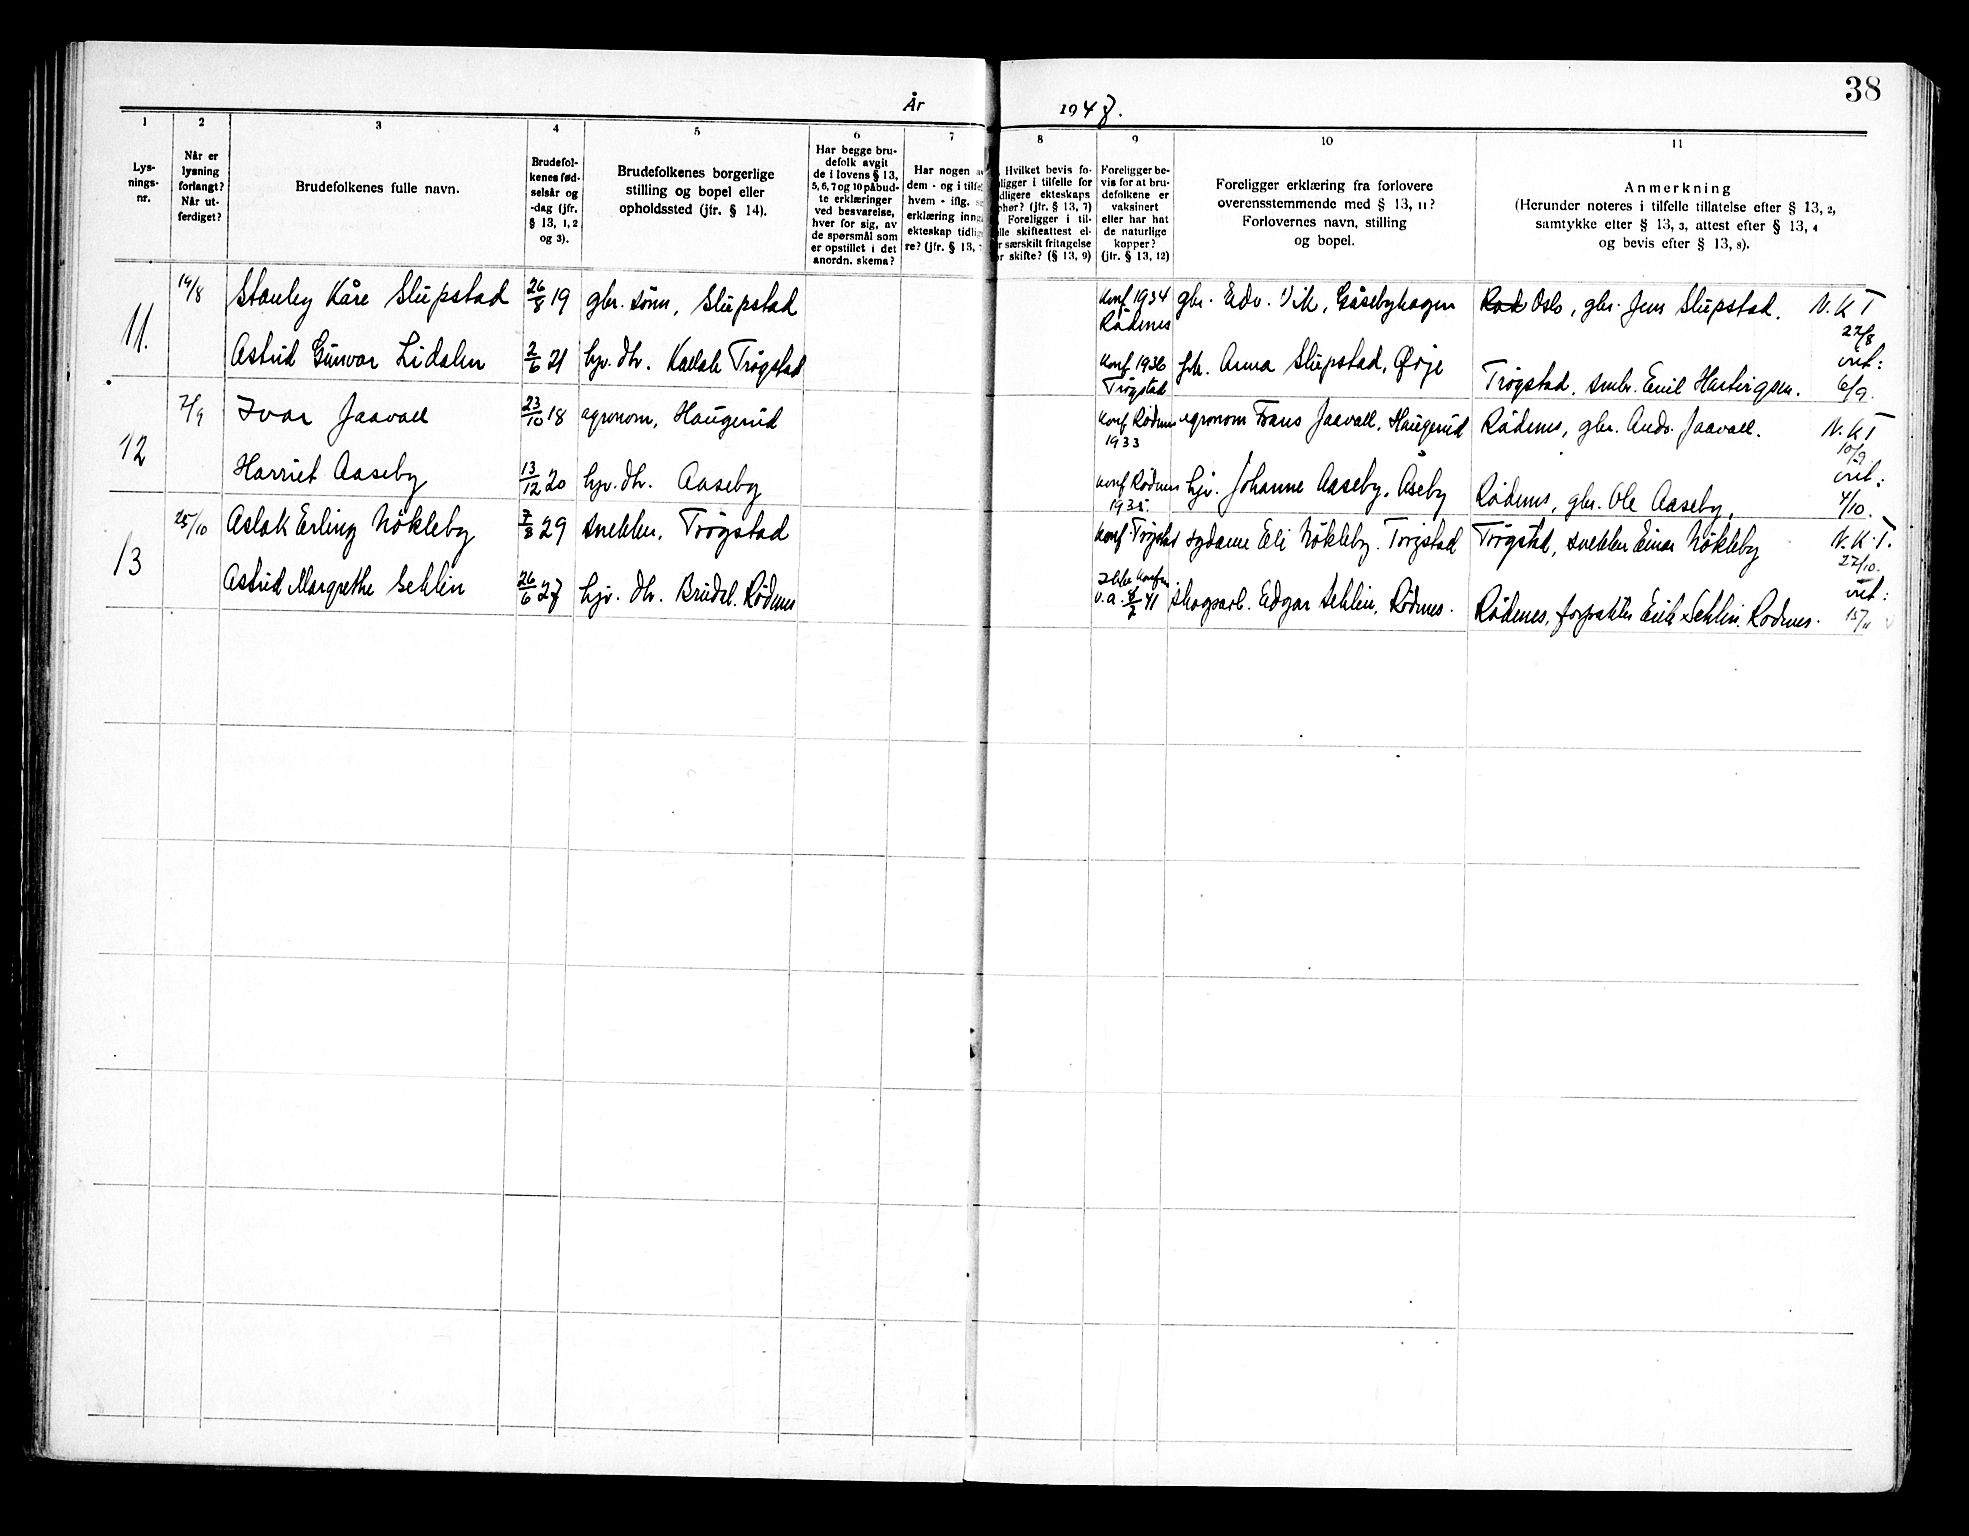 38
År 1948.
1 2 3 4 5 6 7 8 9 10 11
Lys-
nings-
nr.
Når er
lysning
forlangt?
Når ut-
ferdiget?
Brudefolkenes fulle navn.
Brudefol-
kenes fød-
selsår og
-dag (jfr.
§ 13, 1, 2
og 3).
Brudefolkenes borgerlige
stilling og bopel eller
opholdssted (jfr. § 14).
Har begge bru-
defolk avgit
de i lovens § 13,
5, 6, 7 og 10 påbud-
te erklæringer
ved besvarelse,
hver for sig, av
de spørsmål som
er opstillet i det
anordn. skema?
Har nogen a
dem - og i tilfe
hvem - iflg. s
erklæring inng
ekteskap tidlig
re? (jfr. § 13,
Hvilket bevis fo-
ligger i tilfelle for
dligere ekteskaps
phør? (jfr. § 13, 7)
Foreligger i til-
lle skifteattest el-
r særskilt fritagelse
or skifte? (§ 13, 9)
Foreligger be-
vis for at bru-
defolkene er
vaksinert
eller har hat
de naturlige
kopper?
(jfr. § 13, 12)
Foreligger erklæring fra forlovere
overensstemmende med § 13, 11?
Forlovernes navn, stilling
og bopel.
Anmerkning
(Herunder noteres i tilfelle tillatelse efter § 13, 2,
samtykke efter § 13, 3, attest efter § 13, 4
og bevis efter § 13, 8).
11. 19/8 Stanley Kåre Slupstad 26/8 19 gbr. sønn, Slupstad konf 1934 Rødenes gbr. Edv. Vik, Gåsebyhagen Oslo, gbr. Jens Slupstad. N.K T 27/8
Astrid Gunvor Lidalen 2/6 21 hjv. dtr. Kallak Trøgstad konf 1936 Trøgstad frk. Anna Slupstad, Ørje Trøgstad, smbr. Emil Hartvigsen. vit: 6/9.
12 7/9 Ivar Jaavall 23/10 18 agronom, Haugerud konf Rødenes 1933 agronom Frans Jaavall, Haugerud Rødenes, gbr. Andr. Jaavall. N.K T 10/9
Harriet Aaseby 13/12 20 hjv. dtr. Aaseby konf Rødenes 1935. hjv. Johanne Aaseby, Åseby Rødenes, gbr. Ole Aaseby. vit: 4/10.
13 25/10 Aslak Erling Nökleby 7/8 29 snekker, Trøgstad konf. Trøgstad sydame Eli Nökleby. Trøgstad Trøgstad, snekker Einar Nökleby N.K.T. 27/10.
Astrid Margrethe Sehlin 26/6 27 hjv. dtr. Rødenes Ikke konfirm. v.a. 41 skogsarb. Edgar Sehlin, Rødenes. Rødenes, forpakter Erik Sehlin. Rødenes. vit: 15/11